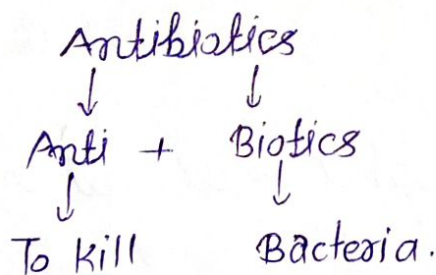 Antibiotics
Anti + Biotics
To Kill Bacteria.